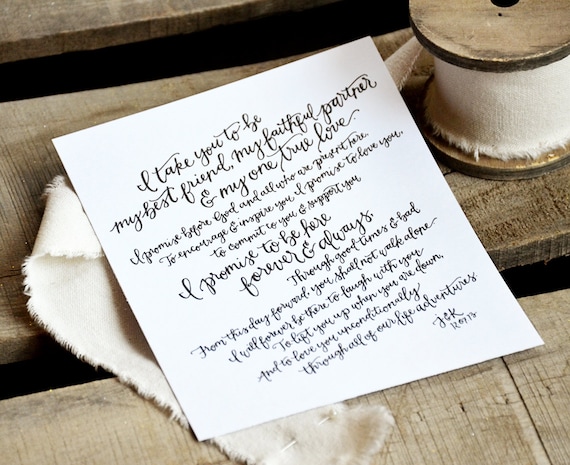 I take you to be
my best friend, my faithful partner
& my one true love
I promise before God and all who are present here,
To encourage & inspire you I promise to love you,
To commit to you & support you
I promise to be here
forever & always.
Through good times & bad
From this day forward you shall not walk alone
I will forever be there to laugh with you
To lift you up when you are down,
And to love you unconditionally
through all of our life adventures
j&k
12.07.13